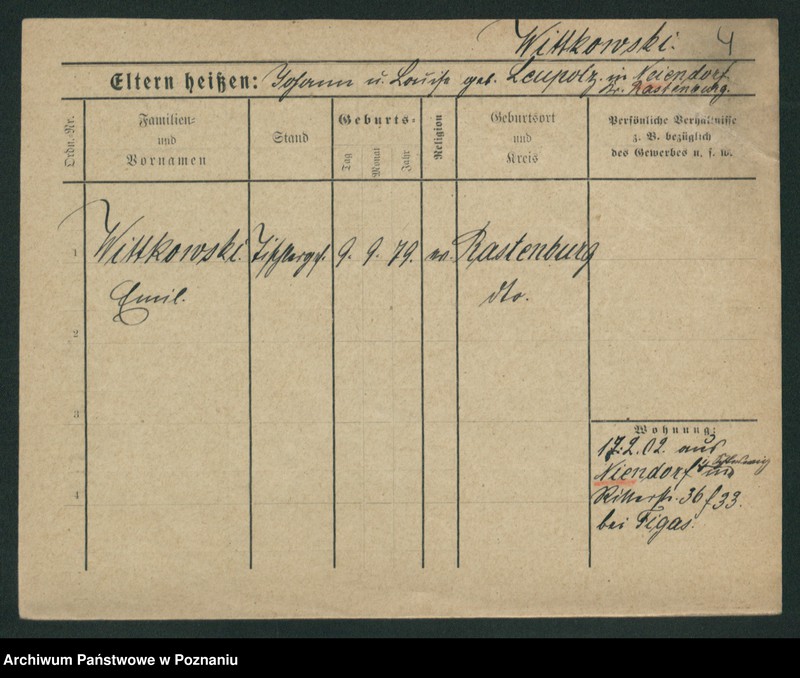 Wittkowski. 4
Eltern heißen: Johann u. Louise geb. Leupolz. in Neiendorf
Kr. Rastenburg.
Ordn.-Nr.
Familien-
und
Vornamen
Stand
Geburts-
Tag
Monat
Jahr
Religion
Geburtsort
und
Kreis
Persönliche Verhältnisse
z. B. bezüglich
des Gewerbes u. s. w.
1 Wittkowski. Tischlerges. 9. 9. 79. ev. Rastenburg
Emil. dto.
2
3
4
Wohnung:
17.2.02. aus
Niendorf
Ritterstr. 36 f 33.
bei Figas.
Archiwum Państwowe w Poznaniu